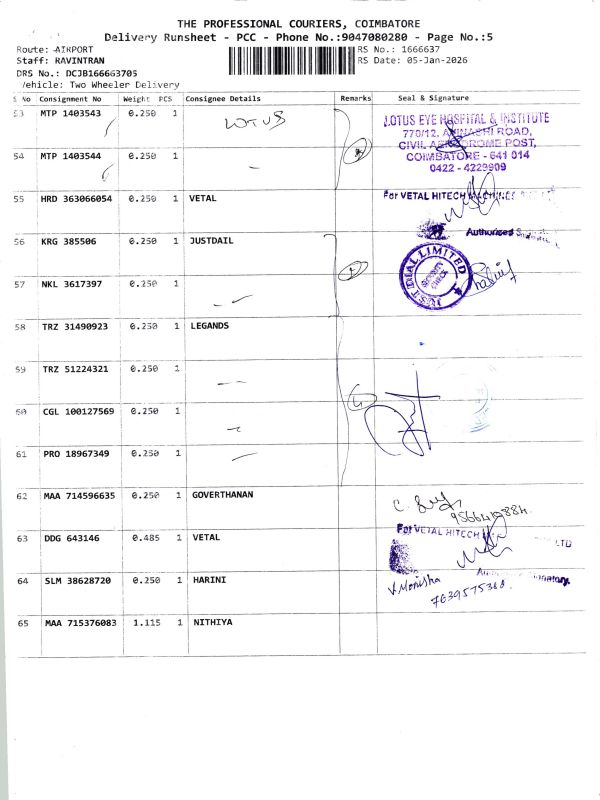 THE PROFESSIONAL COURIERS, COIMBATORE
Delivery Runsheet - PCC - Phone No.:9047080280 - Page No.:5
Route: AIRPORT
RS No.: 1666637
Staff: RAVINTRAN
RS Date: 05-Jan-2026
DRS No.: DCJB166663705
Vehicle: Two Wheeler Delivery
S No Consignment No Weight PCS Consignee Details Remarks Seal & Signature
53 MTP 1403543 0.250 1 LOTUS
LOTUS EYE HOSPITAL & INSTITUTE
770/12, AVINASHI ROAD,
CIVIL AERODROME POST,
COIMBATORE - 641 014
0422 - 4229909
54 MTP 1403544 0.250 1
55 HRD 363066054 0.250 1 VETAL
For VETAL HITECH MACHINES
Authorised
56 KRG 385506 0.250 1 JUSTDAIL
JUST DIAL LIMITED
SECURITY CHECK
57 NKL 3617397 0.250 1
58 TRZ 31490923 0.250 1 LEGANDS
59 TRZ 51224321 0.250 1
60 CGL 100127569 0.250 1
61 PRO 18967349 0.250 1
62 MAA 714596635 0.250 1 GOVERTHANAN
63 DDG 643146 0.485 1 VETAL
For VETAL HITECH LTD
64 SLM 38628720 0.250 1 HARINI
V. Monisha
7639575368
65 MAA 715376083 1.115 1 NITHIYA